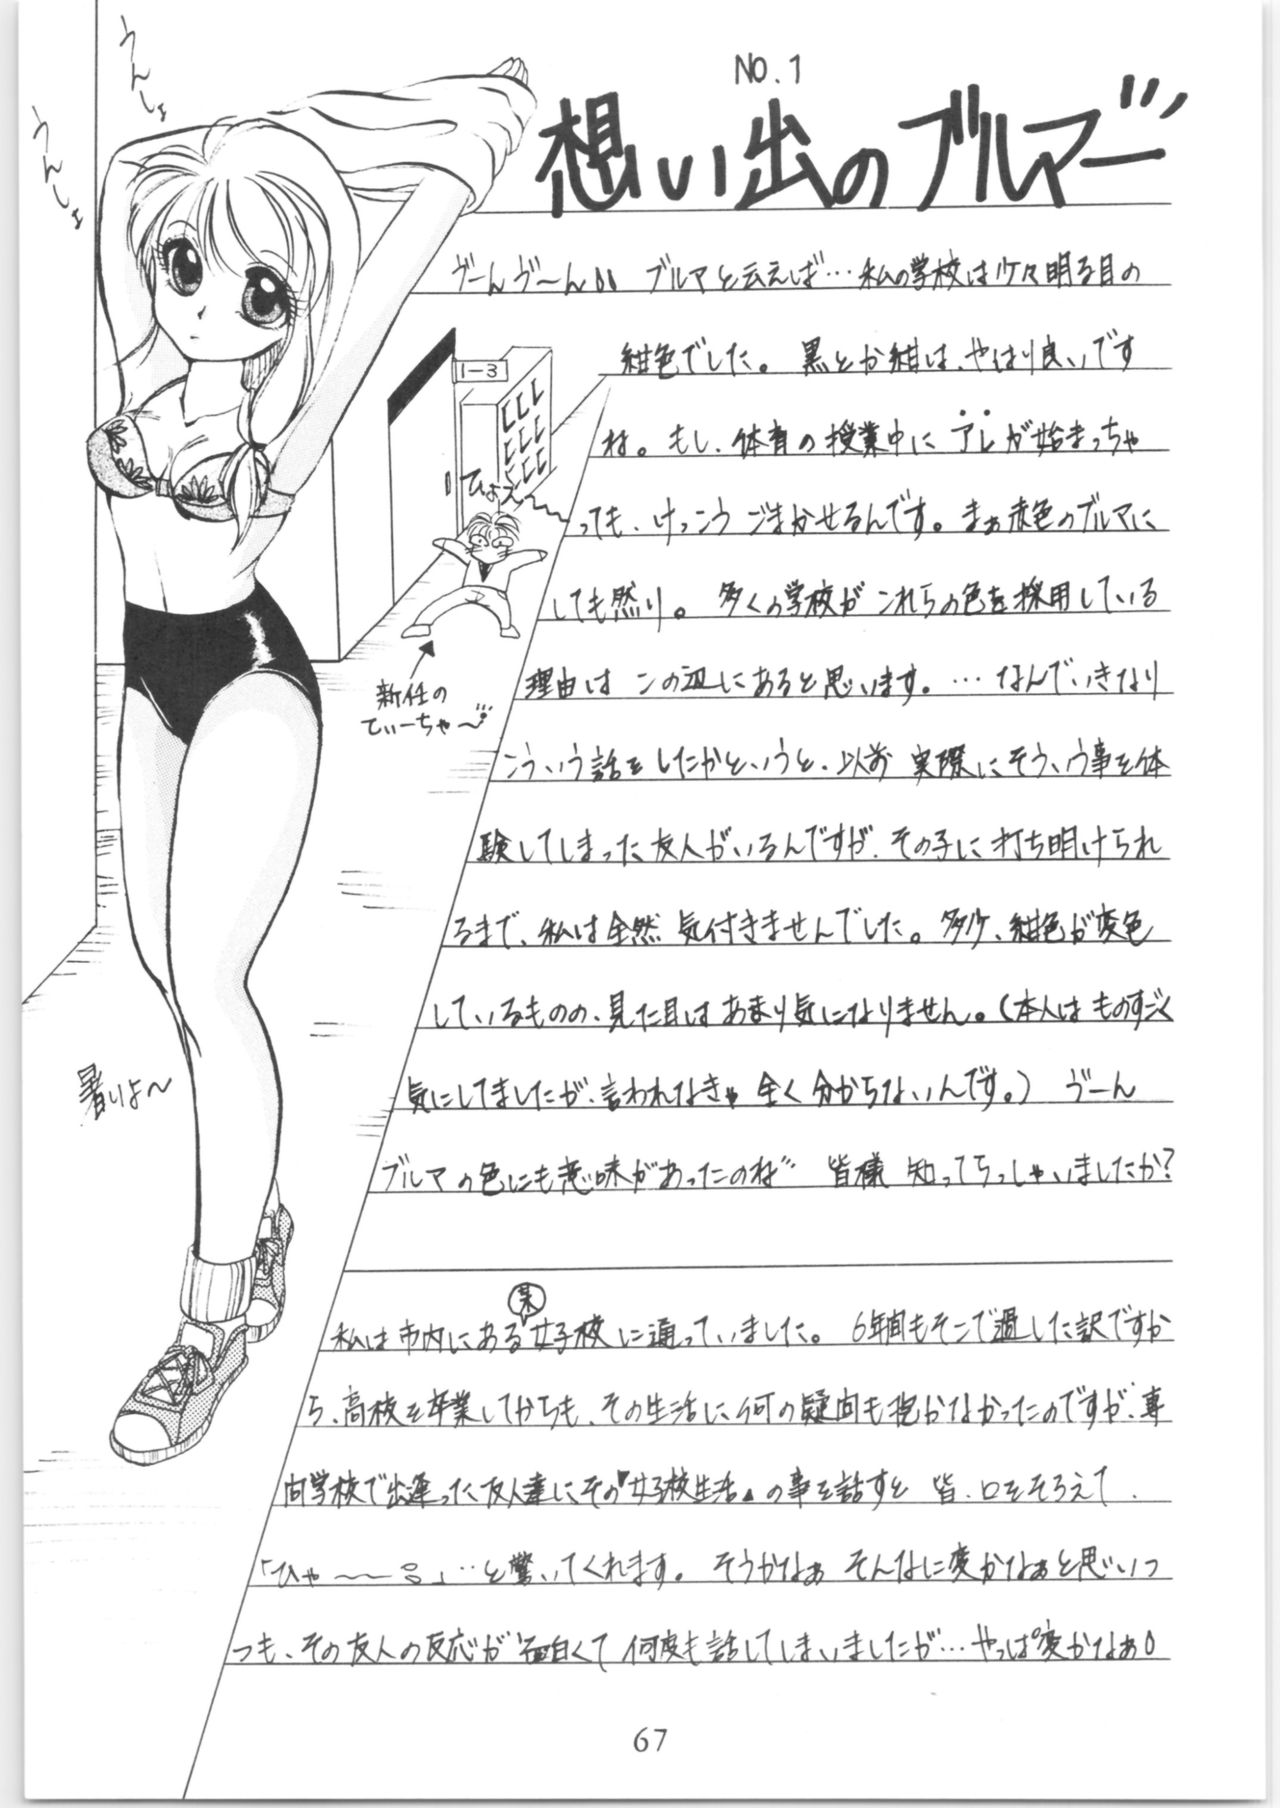 NO.1
想い出のブルマー
うんしょ
うんしょ
ブルマと云えば…私の学校は少々明る目の
紺色でした。黒とか紺は、やはり良いです
ね。もし、体育の授業中にアレが始まっちゃ
っても、けっこうごまかせるんです。まぁ赤色のブルマに
しても然り。多くの学校がこれらの色を採用している
理由はこの辺にあると思います。…なんでいきなり
こういう話をしたかというと、以前実際にそういう事を体
験してしまった友人がいるんですが、その子に打ち明けられ
るまで、私は全然気付きませんでした。多少、紺色が変色
しているものの、見た目はあまり気になりません。(本人はものすごく
気にしてましたが、言われなきゃ全く分からないんです。)ゔーん
ブルマの色にも意味があったのね 皆様知ってらっしゃいましたか?
1-3
ひょえ〜
新任の
てぃーちゃ〜
暑いよ〜
私は市内にある某女子校に通っていました。6年間もそこで過した訳ですか
ら、高校を卒業してからも、その生活に何の疑問も抱かなかったのですが、専
門学校で出逢った友人達に、その『女子校生活』の事を話すと皆、口をそろえて、
「ひゃ〜〜」…と驚いてくれます。そうかなぁそんなに変かなぁと思いつ
つも、その友人の反応が面白くて何度も話してしまいましたが…やっぱ変かなぁ
67